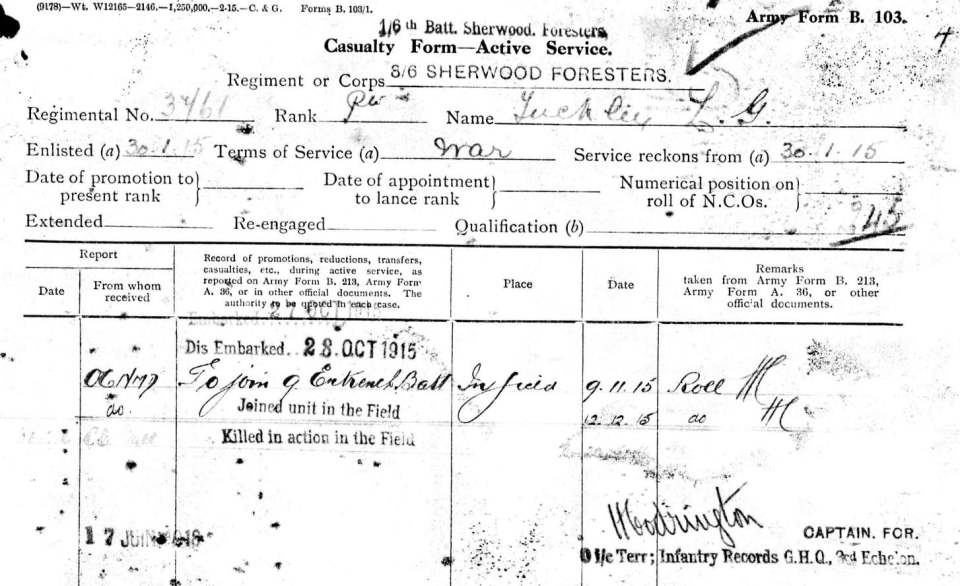 (9178)—Wt. W12165—2146.—1,250,000.—2-15.—C. & G. Forms B. 103/1.
Army Form B. 103.
4
1/6th Batt. Sherwood. Foresters
Casualty Form—Active Service.
Regiment or Corps 3/6 SHERWOOD FORESTERS.
Regimental No. Rank Pte Name L. G.
Enlisted (a) 30.1.15 Terms of Service (a) War Service reckons from (a) 30.1.15
Date of promotion to present rank } Date of appointment to lance rank } Numerical position on roll of N.C.Os. }
Extended Re-engaged Qualification (b) 45
Report
Date
From whom received
Record of promotions, reductions, transfers, casualties, etc., during active service, as reported on Army Form B. 213, Army Form A. 36, or in other official documents. The authority to be quoted in each case.
Place
Date
Remarks
taken from Army Form B. 213, Army Form A. 36, or other official documents.
Embarked. 27 OCT 1915
Dis Embarked. 28 OCT 1915
To join Batt In field 9.11.15 Roll
do. Joined unit in the Field 12.12.15 do
Killed in action in the Field
17 JUN
CAPTAIN. FOR.
O i/c Terr; Infantry Records G.H.Q., 3rd Echelon.